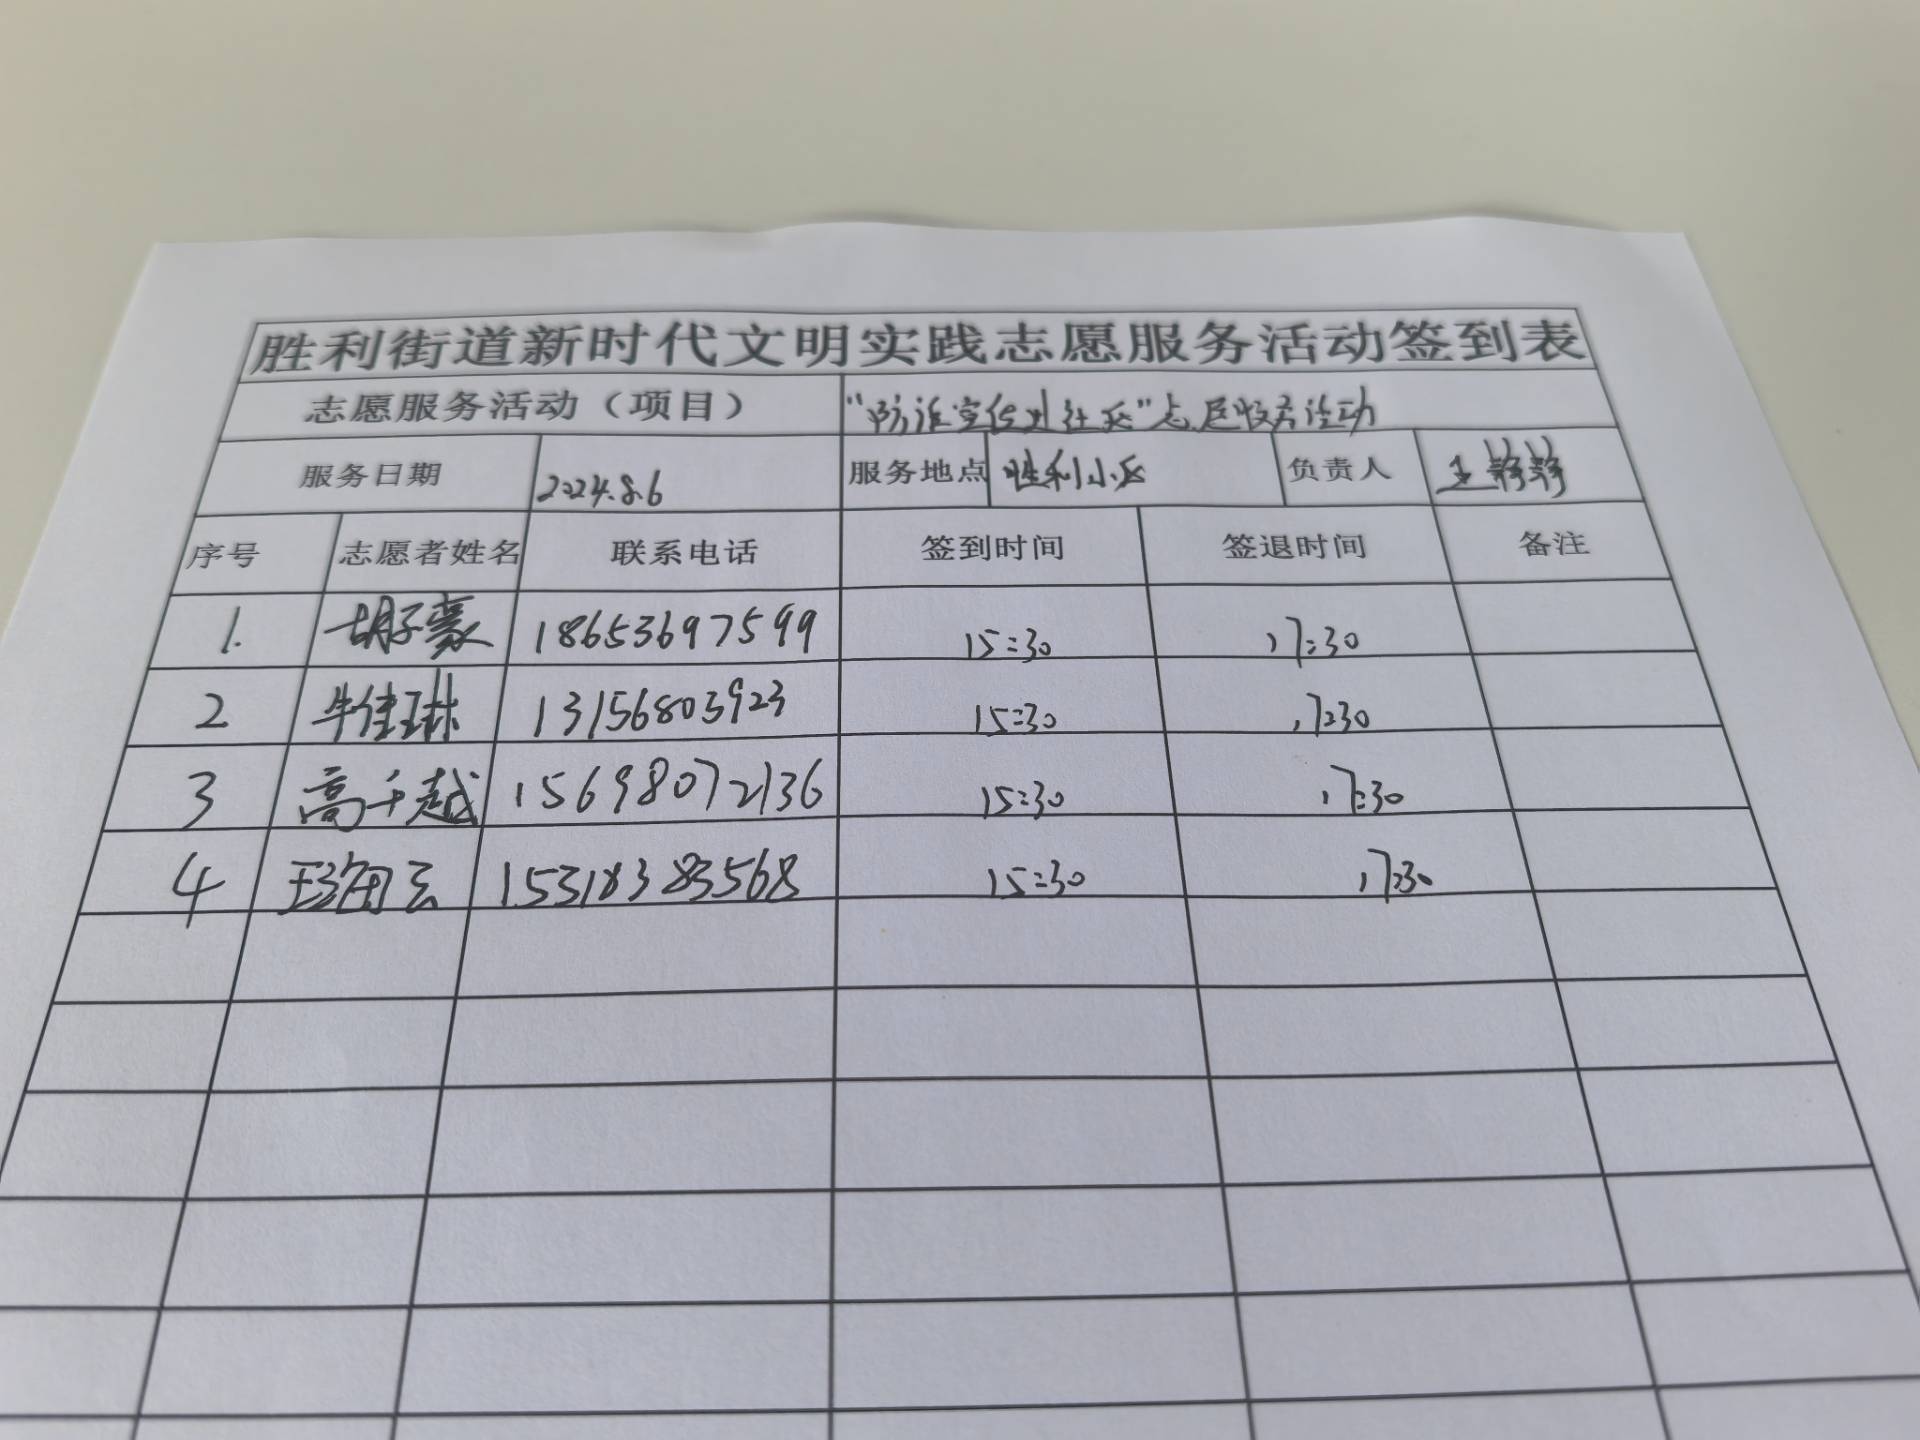 胜利街道新时代文明实践志愿服务活动签到表
志愿服务活动（项目） “防诈宣传到社区”志愿服务活动
服务日期 2024.8.6 服务地点 胜利小区 负责人 王静静
序号 志愿者姓名 联系电话 签到时间 签退时间 备注
1. 胡子豪 18653697599 15:30 17:30
2 牛佳琳 13156803923 15:30 17:30
3 高千越 15698072136 15:30 17:30
4 15318383568 15:30 17:30